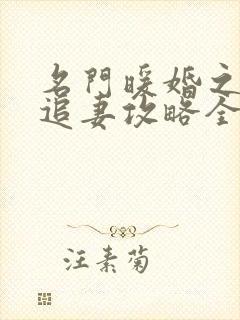 名門暖婚之
追妻攻略全
汪素菊